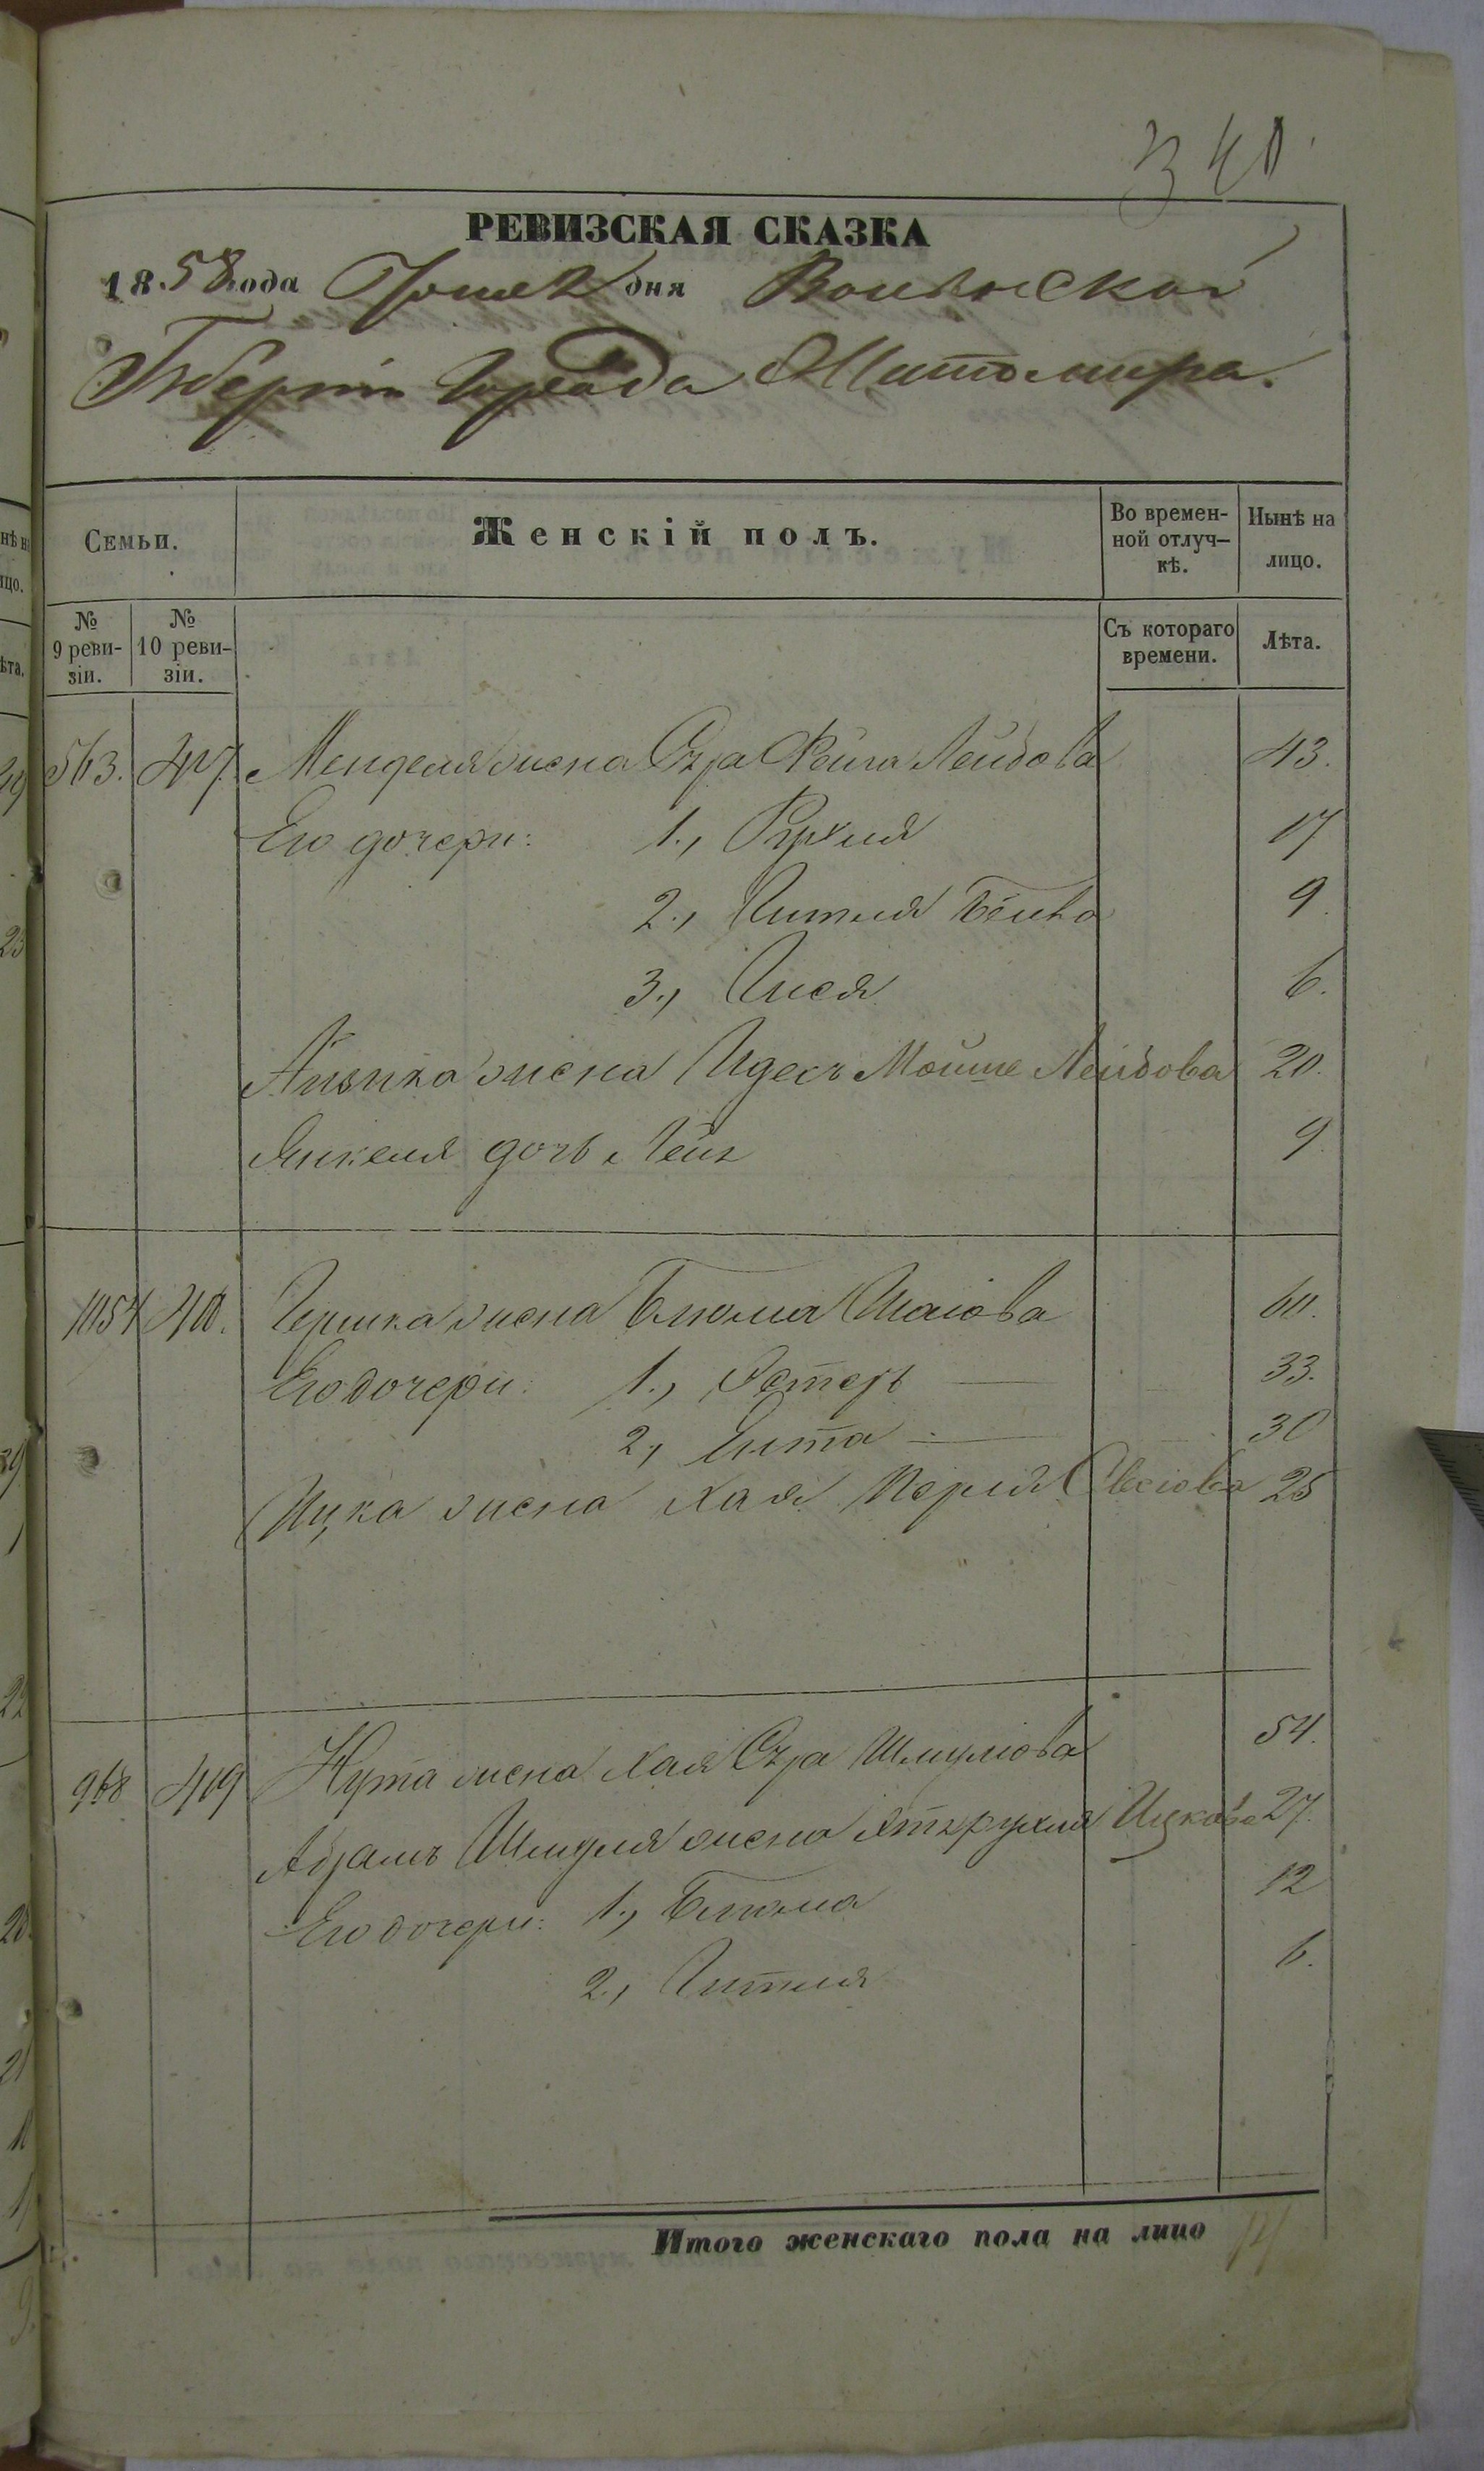 340.
РЕВИЗСКАЯ СКАЗКА
1858 года Іюня 2 дня Волынской
Губерніи города Житомира.
Семьи.
Женскій полъ.
Во времен-
ной отлуч-
кѣ.
Нынѣ на
лицо.
№
9 реви-
зіи.
№
10 реви-
зіи.
Съ котораго
времени.
Лѣта.
563. 407. Менделя жена Сура Фейга Лейбова 43.
Его дочери: 1., Рухля 17
2., Гитля Бейла 9.
3., Гися 6.
Айзика жена Идесъ Мойше Лейбова 20.
Янкеля дочь Лея 9
1054 408. Гершка жена Блюма Шаіова 60.
Его дочери: 1., Эстеръ 33.
2., Ента 30
Ицка жена Хая Перля Овсіова 25
968 409 Нута жена Хая Сура Шмулiова 54.
Абрамъ Шмуля жена Ицкова 27.
Его дочери: 1., Блюма 12
2., Гитля 6.
Итого женскаго пола на лицо 14